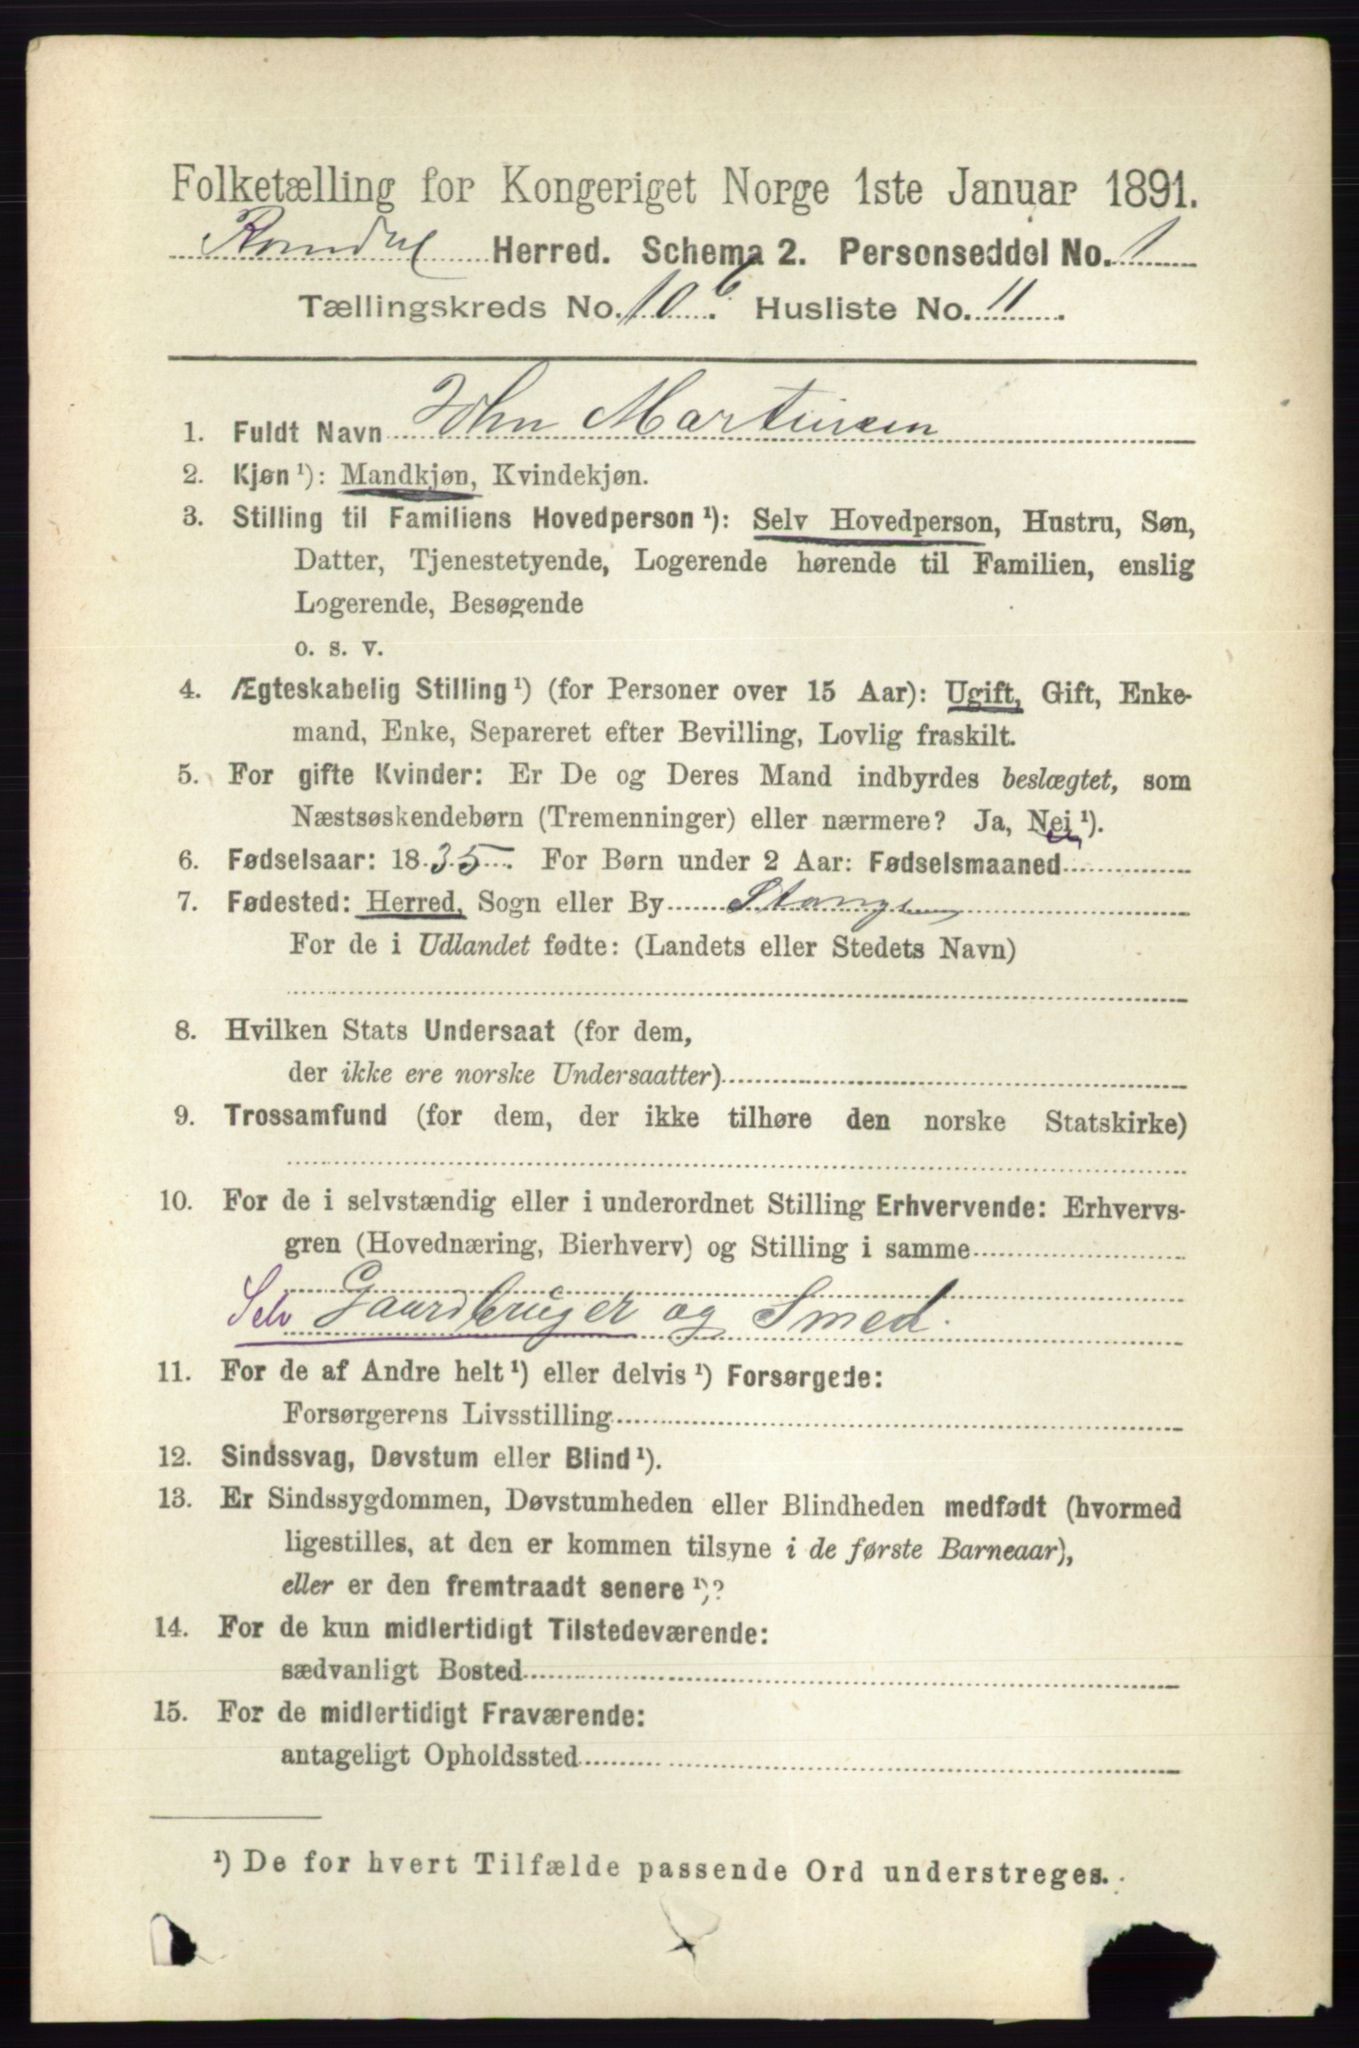 Folketælling for Kongeriget Norge 1ste Januar 1891.
Romedal Herred. Schema 2. Personseddel No. 1
Tællingskreds No. 10 b. Husliste No. 11.
1. Fuldt Navn John Martinsen
2. Kjøn ¹): Mandkjøn, Kvindekjøn.
3. Stilling til Familiens Hovedperson ¹): Selv Hovedperson, Hustru, Søn,
Datter, Tjenestetyende, Logerende hørende til Familien, enslig
Logerende, Besøgende
o. s. v.
4. Ægteskabelig Stilling ¹) (for Personer over 15 Aar): Ugift, Gift, Enke-
mand, Enke, Separeret efter Bevilling, Lovlig fraskilt.
5. For gifte Kvinder: Er De og Deres Mand indbyrdes beslægtet, som
Næstsøskendebørn (Tremenninger) eller nærmere? Ja, Nei ¹).
6. Fødselsaar: 1835. For Børn under 2 Aar: Fødselsmaaned
7. Fødested: Herred, Sogn eller By Stange
For de i Udlandet fødte: (Landets eller Stedets Navn)
8. Hvilken Stats Undersaat (for dem,
der ikke ere norske Undersaatter)
9. Trossamfund (for dem, der ikke tilhøre den norske Statskirke)
10. For de i selvstændig eller i underordnet Stilling Erhvervende: Erhvervs-
gren (Hovednæring, Bierhverv) og Stilling i samme
Selv Gaardbruger og Smed.
11. For de af Andre helt ¹) eller delvis ¹) Forsørgede:
Forsørgerens Livsstilling
12. Sindssvag, Døvstum eller Blind ¹).
13. Er Sindssygdommen, Døvstumheden eller Blindheden medfødt (hvormed
ligestilles, at den er kommen tilsyne i de første Barneaar),
eller er den fremtraadt senere ¹)?
14. For de kun midlertidigt Tilstedeværende:
sædvanligt Bosted
15. For de midlertidigt Fraværende:
antageligt Opholdssted
¹) De for hvert Tilfælde passende Ord understreges.